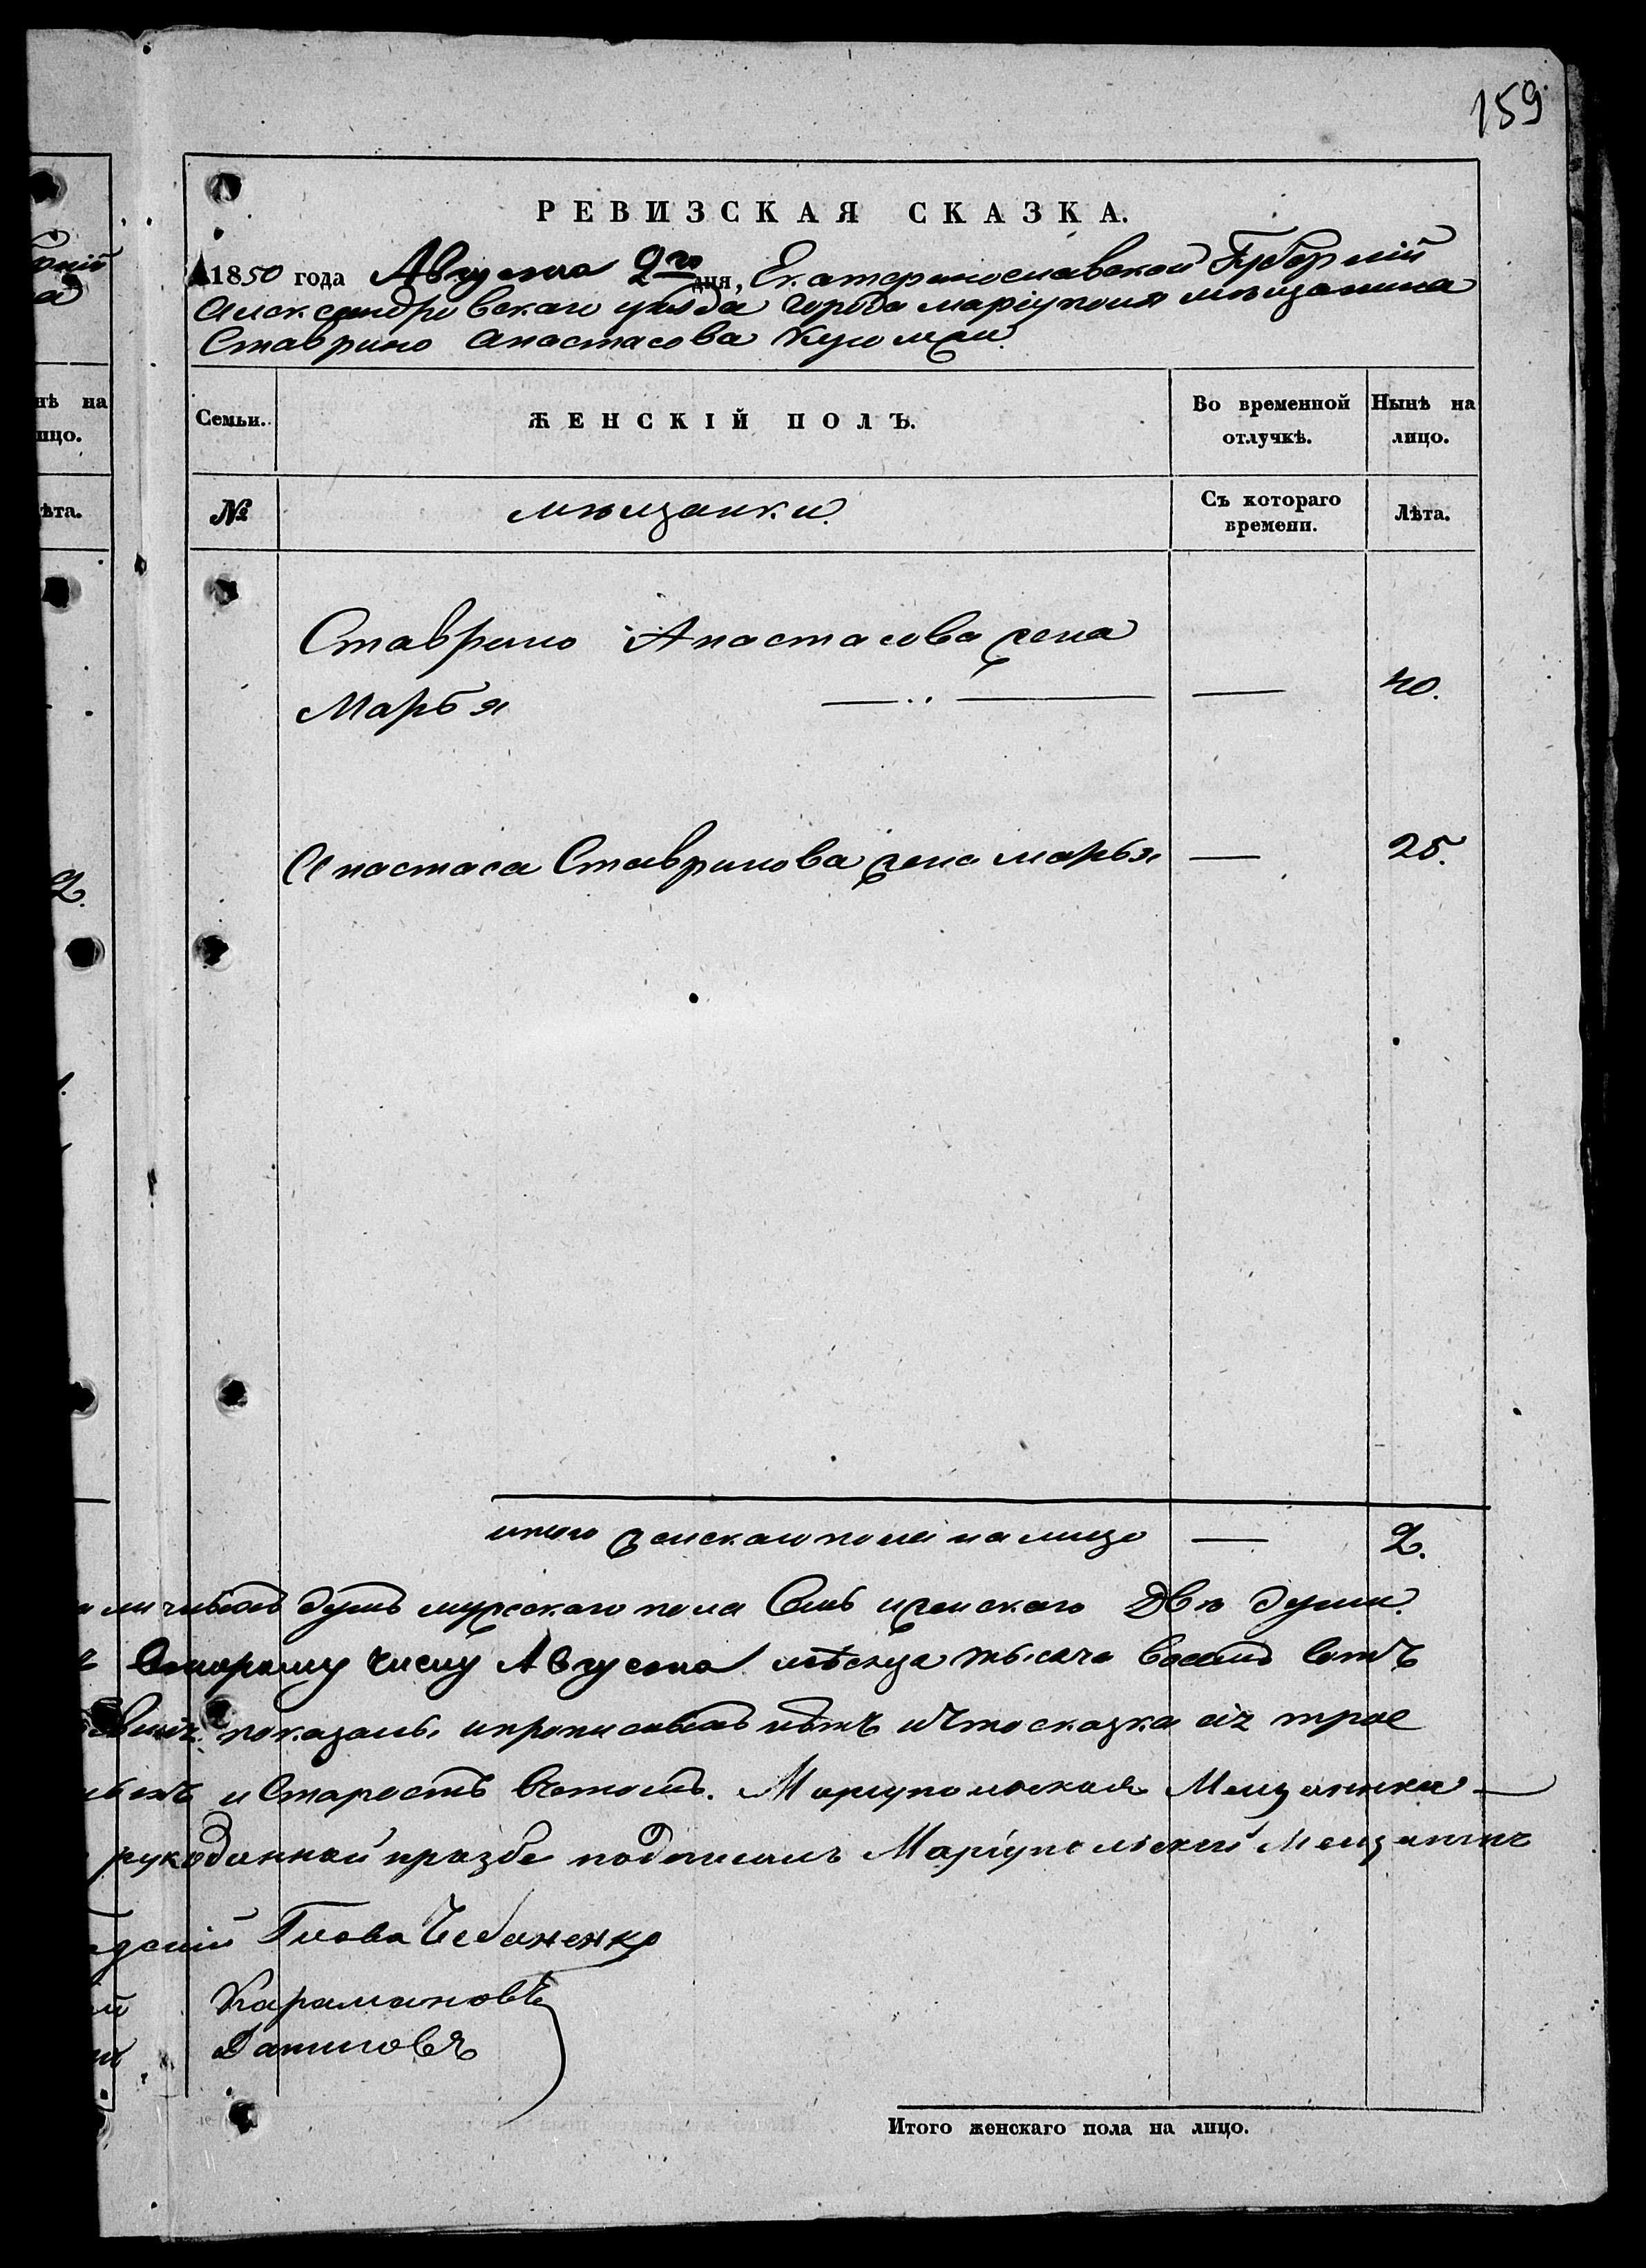 159
РЕВИЗСКАЯ СКАЗКА.
1850 года Августа 2го дня, Екатеринославской Губерній
Александровскаго уѣзда города Маріуполя мѣщанина
Ставрино Анастасова
Семьи. ЖЕНСКІЙ ПОЛЪ. Во временной отлучкѣ. Нынѣ на лицо.
№ мѣщанки. Съ котораго времени. Лѣта.
Ставрино Анастасова жена
Марья — 40.
Анастаса Ставринова жена марья — 25.
итого женскаго пола на лицо — 2.
душъ мужескаго пола Семь и женскаго Двѣ души.
Второму числу Августа мѣсяца тысяча восемь сотъ
показалъ, и прописныхъ нѣтъ и что сказка сія
и Старостъ Маріупольская Мещанка
рукоданной прозбе подписалъ Маріупольский Мещанинъ
Глова Чебаненко
Карамановъ
Даниловъ
Итого женскаго пола на лицо.
нѣ на
ицо.
ѣта.
2.